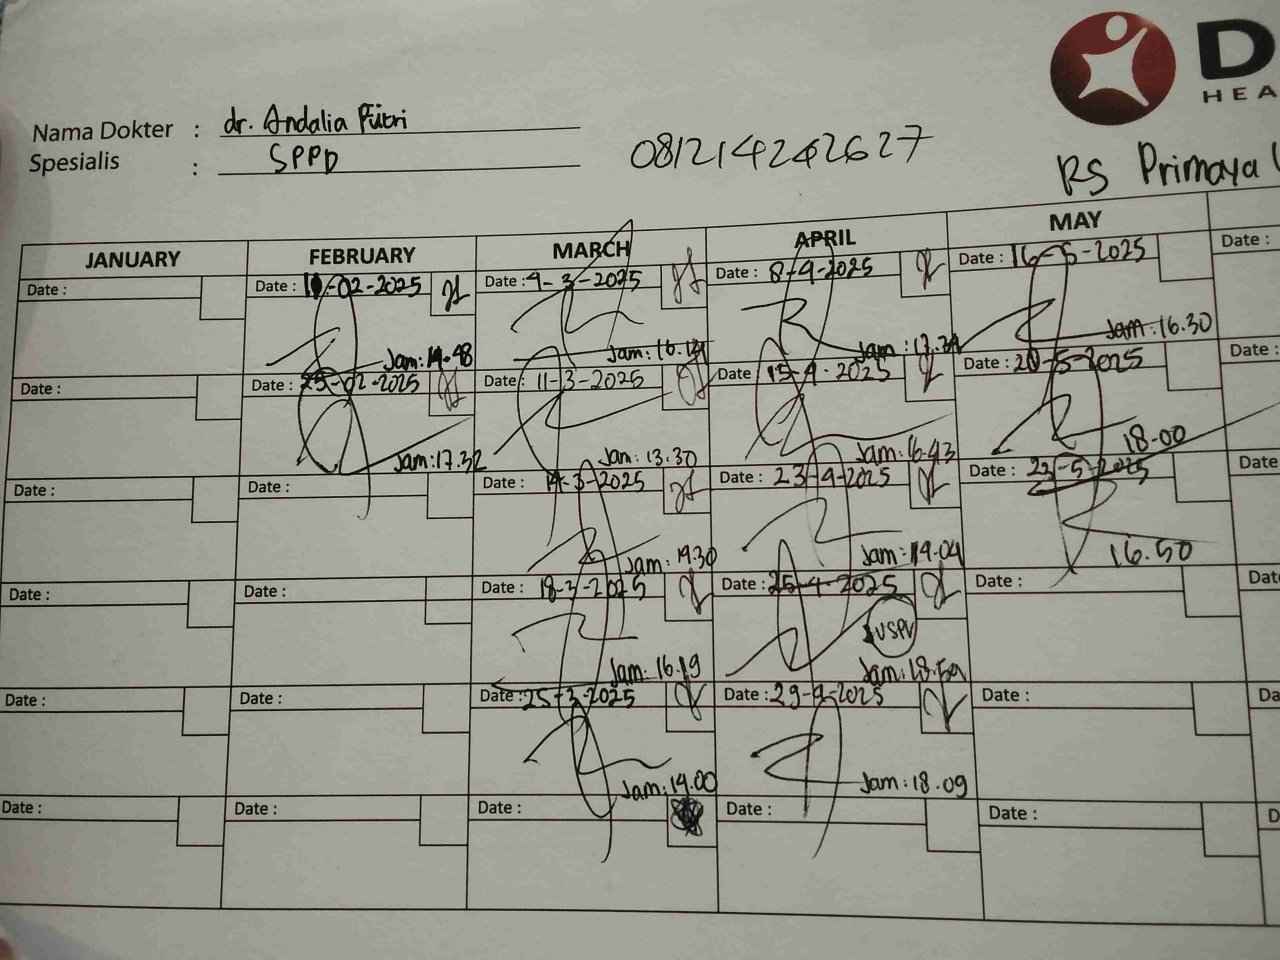 D
HEA
Nama Dokter : dr. Andalia Putri
Spesialis : SPPD
081214242627
RS Primaya
JANUARY FEBRUARY MARCH APRIL MAY
Date : Date : -02-2025 Date : 4-3-2025 Date : 8-4-2025 Date : 16-5-2025 Date :
Jam: 14.48 Jam: Jam: Jam: 16.30
Date : Date : 25-02-2025 Date : 11-3-2025 Date : 15-4-2025 Date : 20-5-2025 Date :
Jam: 17.32 Jam: 13.30 Jam: 16.43 18.00
Date : Date : Date : 14-3-2025 Date : 23-4-2025 Date : -5-2025 Date
Jam: 14.30 Jam: 14.04 16.50
Date : Date : Date : 18-3-2025 Date : 25-4-2025 Date : Dat
USPV
Jam: 16.19 Jam: 18.59
Date : Date : Date : 25-3-2025 Date : 29-4-2025 Date : Da
Jam: 14.00 Jam: 18.09
Date : Date : Date : Date : Date : D